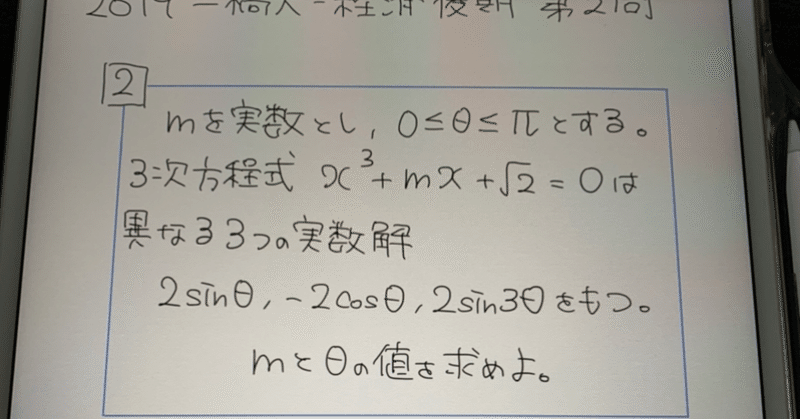 2019 一橋大-経済後期 第2問
2
mを実数とし, 0≤θ≤πとする。
3次方程式 x³+mx+√2=0は
異なる3つの実数解
2sinθ, -2cosθ, 2sin3θをもつ。
mとθの値を求めよ。